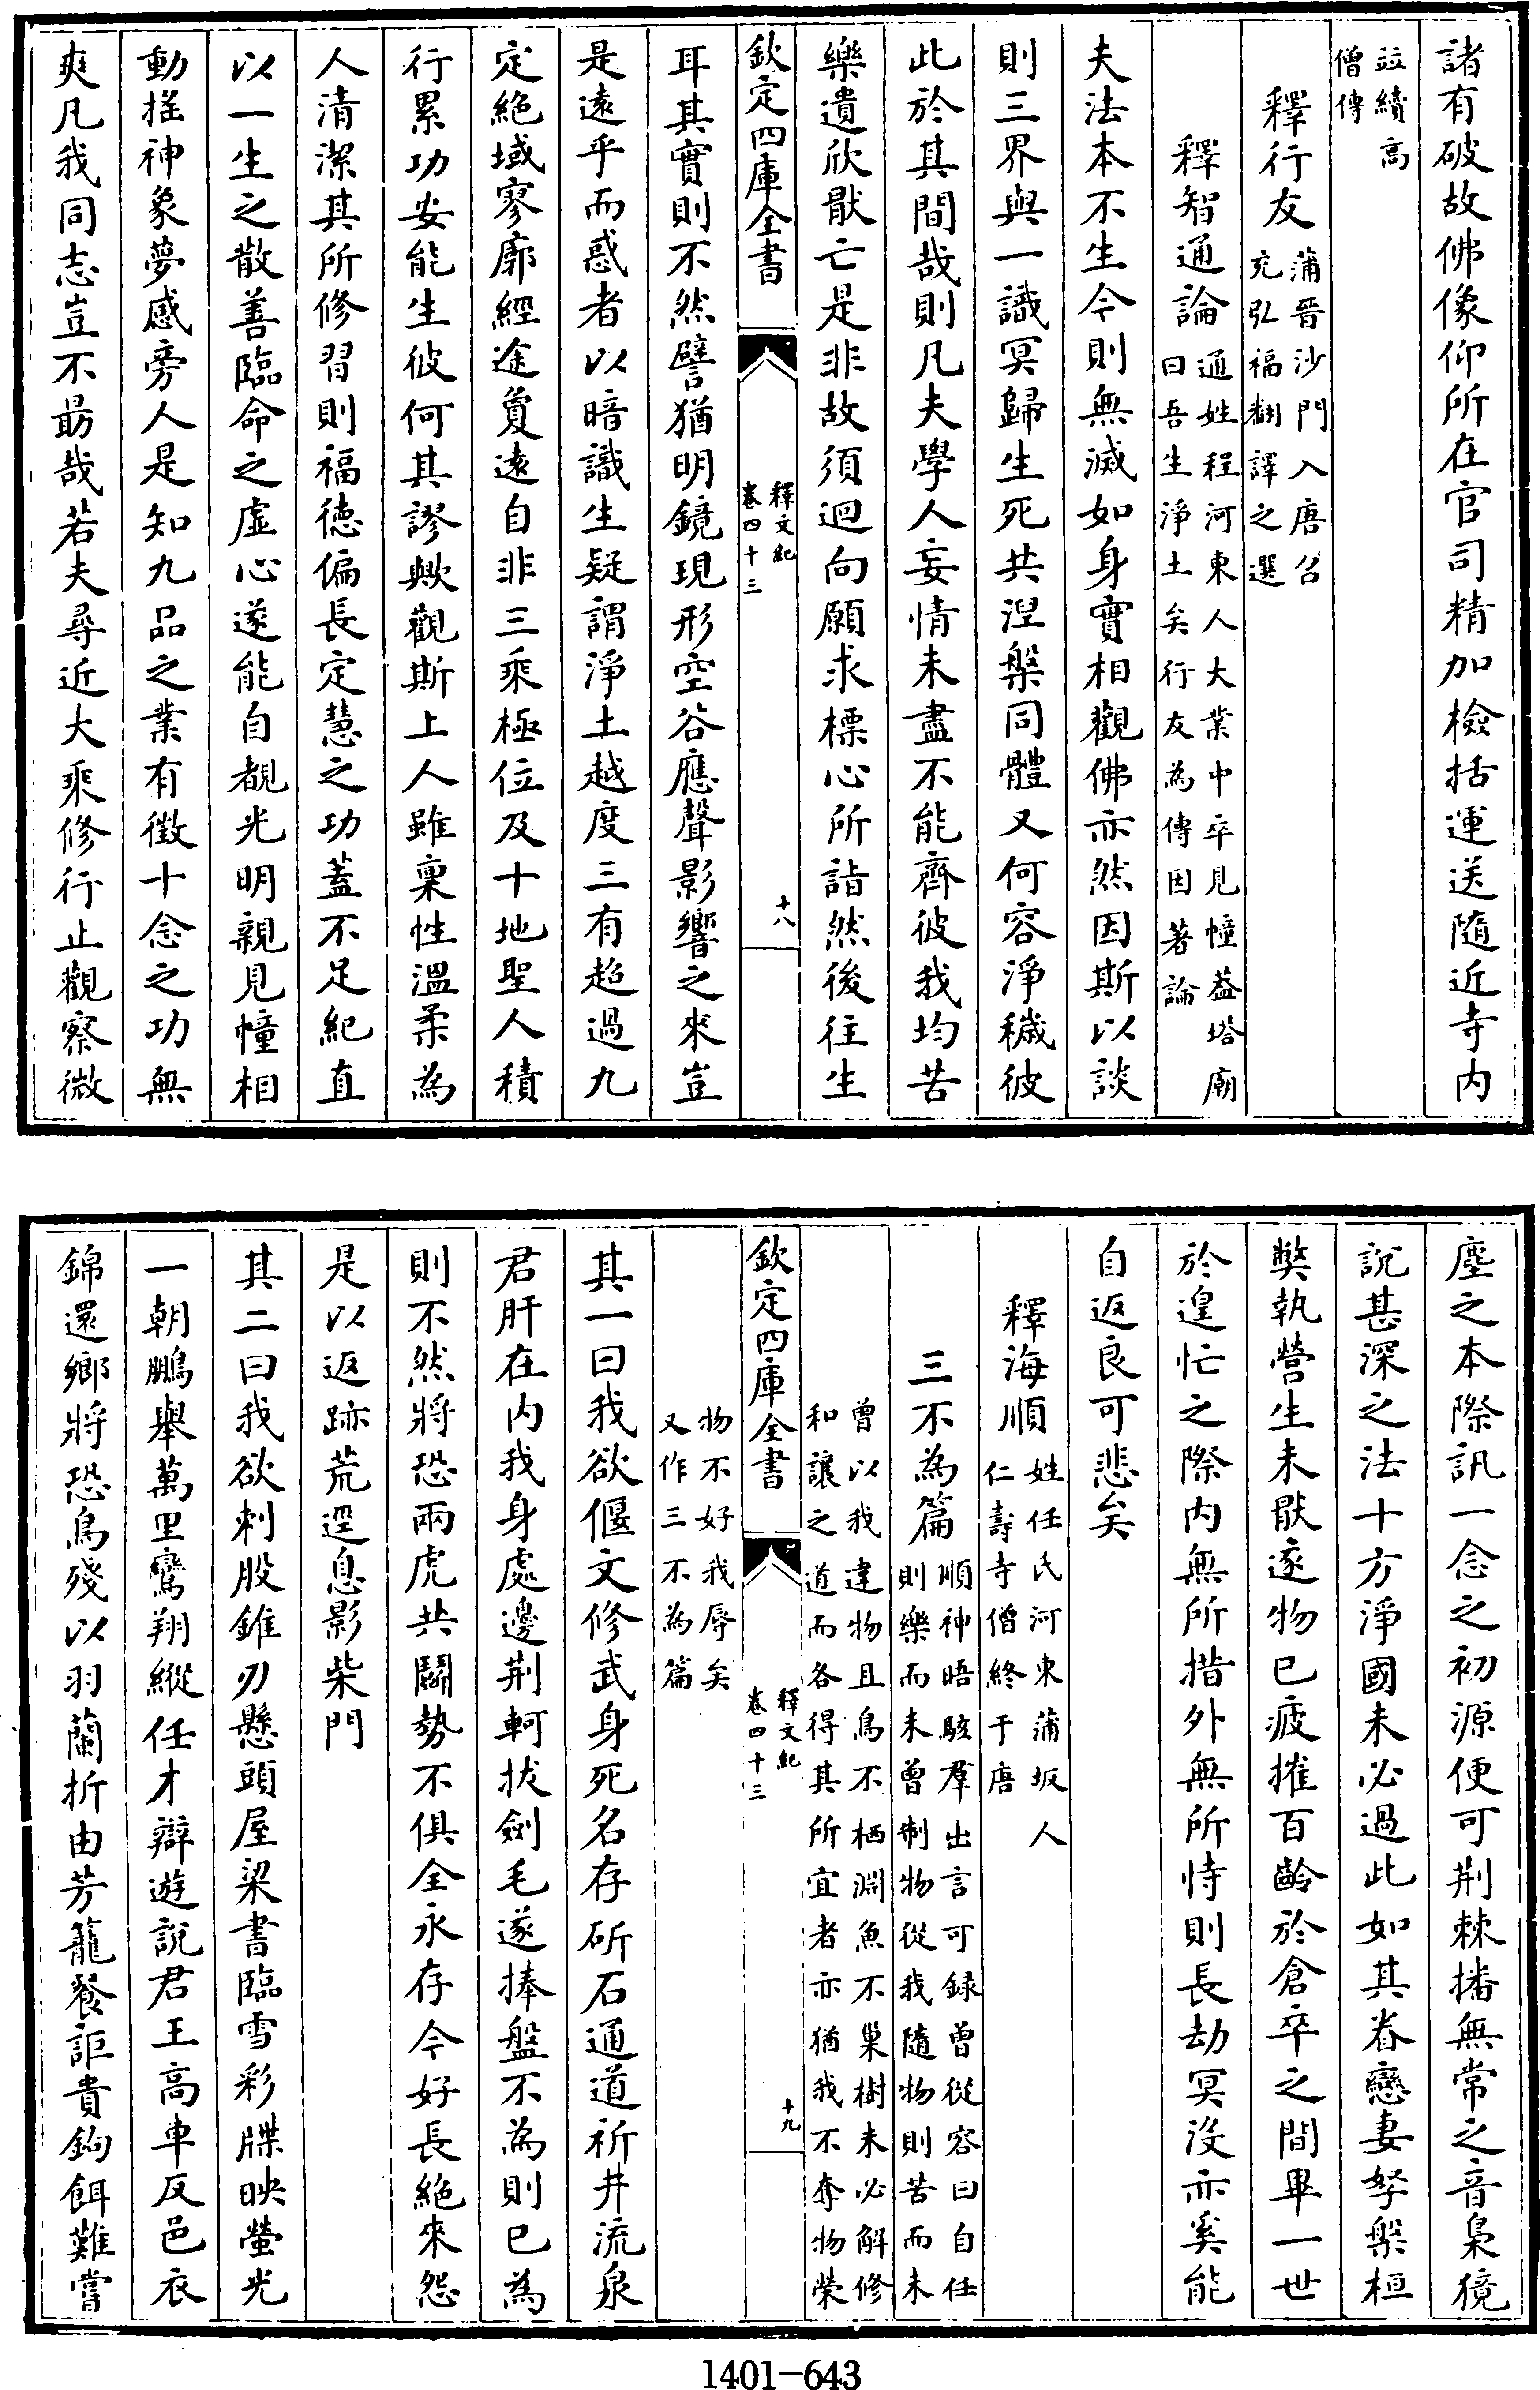 諸有破故佛像仰所在官司精加檢括運送隨近寺内
竝續高
僧傳
釋行友
蒲晉沙門入唐召
充弘福翻譯之選
釋智通論
通姓程河東人大業中卒見幢葢塔廟
曰吾生淨土矣行友為傳因著論
夫法本不生今則無滅如身實相觀佛亦然因斯以談
則三界與一識冥歸生死共涅槃同體又何容淨穢彼
此於其間哉則凡夫學人妄情未盡不能齊彼我均苦
樂遺欣猒亡是非故須迴向願求標心所詣然後往生
欽定四庫全書
釋文紀
卷四十三
十八
耳其實則不然譬猶明鏡現形空谷應聲影響之來豈
是遠乎而惑者以暗識生疑謂淨土越度三有超過九
定絶域寥廓經途敻遠自非三乘極位及十地聖人積
行累功安能生彼何其謬歟觀斯上人雖稟性溫柔為
人清潔其所修習則福徳偏長定慧之功蓋不足紀直
以一生之散善臨命之虛心遂能自覩光明親見幢相
動揺神象夢感旁人是知九品之業有徵十念之功無
爽凡我同志豈不勗哉若夫尋近大乘修行止觀察微
塵之本際訊一念之初源便可荆棘播無常之音梟獍
說甚深之法十方淨國未必過此如其眷戀妻孥槃桓
獘執營生未猒逐物已疲摧百齡於倉卒之間畢一世
於遑忙之際内無所措外無所恃則長劫冥没亦奚能
自返良可悲矣
釋海順
姓任氏河東蒲坂人
仁壽寺僧終于唐
三不為篇
順神晤駭羣出言可録曾從容曰自任
則樂而未曾制物從我隨物則苦而未
曾以我違物且鳥不栖淵魚不巢樹未必解修
和讓之道而各得其所宜者亦猶我不奪物榮
欽定四庫全書
釋文紀
卷四十三
十九
物不好我辱矣
又作三不為篇
其一曰我欲偃文修武身死名存斫石通道祈井流泉
君肝在内我身處邊荆軻拔劍毛遂捧盤不為則已為
則不然將恐兩虎共鬬勢不俱全永存今好長絶來怨
是以返跡荒逕息影柴門
其二曰我欲刺股錐刃懸頭屋梁書臨雪彩牒映螢光
一朝鵬舉萬里鸞翔縱任才辯遊說君王高車反邑衣
錦還鄉將恐鳥殘以羽蘭折由芳籠餐詎貴鉤餌難嘗
1401-643